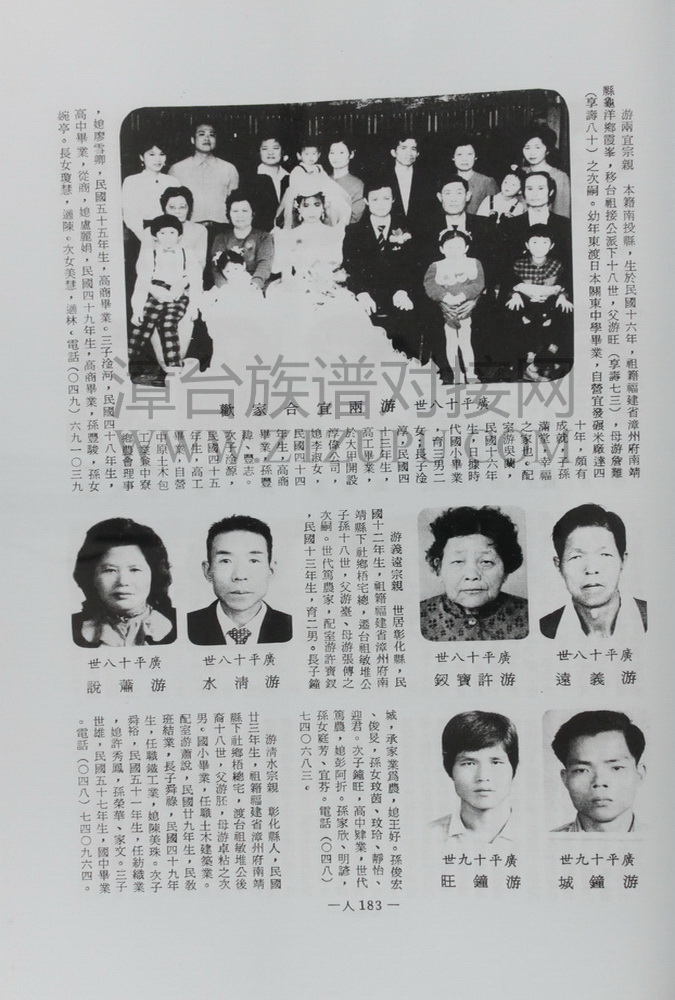 游兩宜宗親　本籍南投縣，生於民國十六年，祖籍福建省漳州府南靖
縣龜洋鄉霞峯，移台祖接公派下十八世，父游旺（享壽七三），母游詹難
（享壽八十）之次嗣。幼年東渡日本關東中學畢業，自營宜發碾米廠達四
十年，頗有
成就，子孫
滿堂，幸福
之家也。配
室游吳蘭，
民國十六年
生，日據時
代國小畢業
，育三男二
女；長子淦
淳，民國四
十三年生，
高工畢業，
於大甲開設
淳偉公司，
媳李淑女，
民國四十四
年生，高商
畢業，孫豐
，豐志。
次子淦源，
民國四十五
年生，高工
畢業，自營
中原土木包
工業兼中寮
鄉農會理事
，媳廖雪卿，民國五十五年生，高商畢業。三子淦河，民國四十八年生，
高中畢業，從商，媳盧麗娟，民國四十九年生，高商畢業，孫豐駿，孫女
婉亭。長女瓊慧，適陳。次女美慧，適林。電話（〇四九）六九一〇三九
廣平十八世　游兩宜合家歡
漳台族谱对接网
WWW.ZTZUPU.COM
廣平十八世
游義遠
廣平十八世
游許寶釵
游義遠宗親　世居彰化縣，民
國十二年生，祖籍福建省漳州府南
靖縣下社鄉梧宅總，遷台祖敏堆公
子孫十八世，父游臺、母游張傳之
次嗣。世代篤農家，配室游許寶釵
，民國十三年生，育二男。長子鐘
城，承家業爲農，媳王好。孫俊宏
、俊旻，孫女玟茵、玟玲、靜怡、
迎君。次子鐘旺，高中肄業，世代
篤農，媳彭阿折。孫家欣、明諺，
孫女庭芳、宜芬。電話（〇四八）
七四〇六八三。
廣平十九世
游鐘城
廣平十九世
游鐘旺
廣平十八世
游清水
廣平十八世
游蕭說
游清水宗親　彰化縣人，民國
廿三年生，祖籍福建省漳州府南靖
縣下社鄉梧總宅，渡台祖敏堆公後
裔十八世，父游胚，母游卓粘之次
男。國小畢業，任職土木建築業。
配室游蕭說，民國廿九年生，民教
班結業，長子舜祿，民國四十九年
生，任職鐵工業，媳陳美珠。次子
舜裕，民國五十一年生，任紡織業
，媳許秀鳳，孫榮華、家文。三子
世雄，民國五十七年生，國中畢業
。電話（〇四八）七四〇九六四。
— 人 183 —